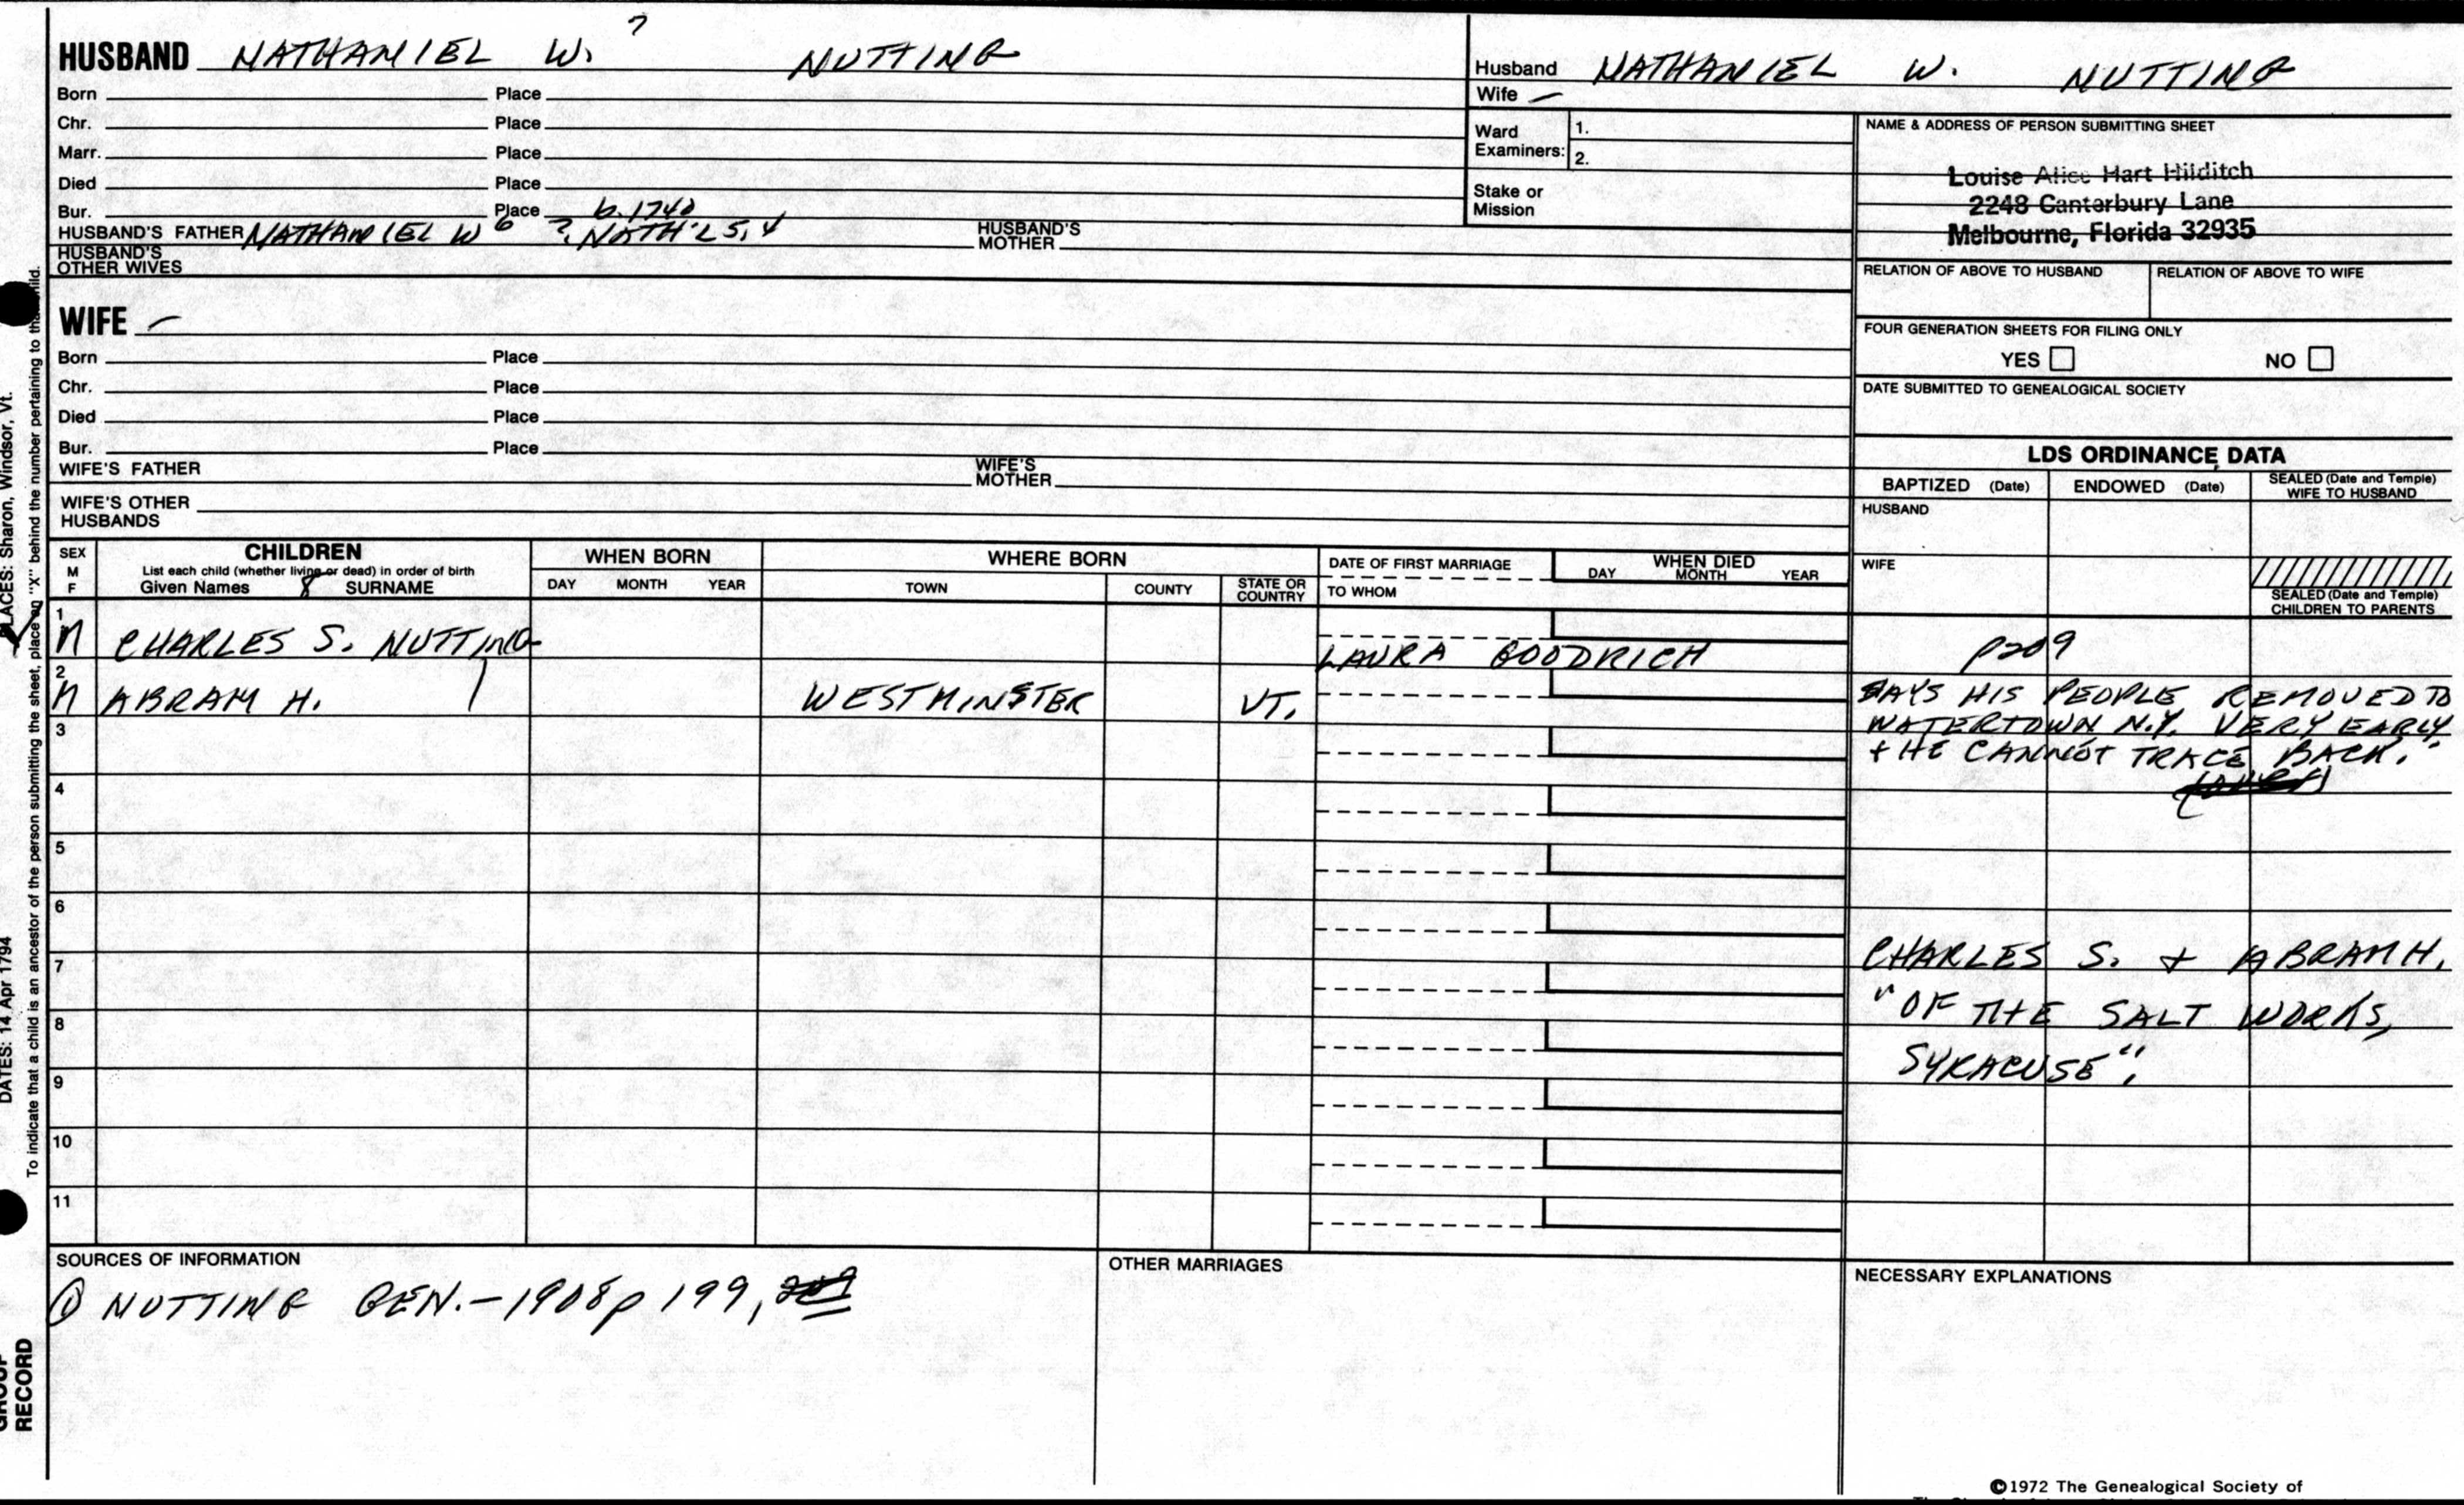 HUSBAND NATHANIEL W. 7 NUTTING
Born Place
Chr. Place
Marr. Place
Died Place
Bur. Place b. 1740
HUSBAND'S FATHER NATHANIEL W 6 ?. NATH'L 5, 4 HUSBAND'S MOTHER
HUSBAND'S OTHER WIVES
Husband NATHANIEL W. NUTTING
Wife —
Ward Examiners: 1.
2.
Stake or Mission
NAME & ADDRESS OF PERSON SUBMITTING SHEET
Louise Alice Hart Hilditch
2248 Canterbury Lane
Melbourne, Florida 32935
RELATION OF ABOVE TO HUSBAND RELATION OF ABOVE TO WIFE
FOUR GENERATION SHEETS FOR FILING ONLY
YES NO
DATE SUBMITTED TO GENEALOGICAL SOCIETY
WIFE —
Born Place
Chr. Place
Died Place
Bur. Place
WIFE'S FATHER WIFE'S MOTHER
WIFE'S OTHER HUSBANDS
LDS ORDINANCE DATA
BAPTIZED (Date) ENDOWED (Date) SEALED (Date and Temple) WIFE TO HUSBAND
HUSBAND
WIFE
SEALED (Date and Temple) CHILDREN TO PARENTS
SEX M F
CHILDREN
List each child (whether living or dead) in order of birth
Given Names 8 SURNAME
WHEN BORN
DAY MONTH YEAR
WHERE BORN
TOWN COUNTY STATE OR COUNTRY
DATE OF FIRST MARRIAGE
TO WHOM
WHEN DIED
DAY MONTH YEAR
1 M CHARLES S. NUTTING LAURA GOODRICH p209
2 M ABRAM H. WESTMINSTER VT.
SAYS HIS PEOPLE REMOVED TO
WATERTOWN N.Y. VERY EARLY
+ HE CANNOT TRACE BACK."
3
4
5
6
7
8
9
10
11
CHARLES S. + ABRAM H.
"OF THE SALT WORKS,
SYRACUSE".
SOURCES OF INFORMATION
① NUTTING GEN. - 1908 p 199, 209
OTHER MARRIAGES
NECESSARY EXPLANATIONS
©1972 The Genealogical Society of
PLACES: Sharon, Windsor, Vt.
DATES: 14 Apr 1794
To indicate that a child is an ancestor of the person submitting the sheet, place an "X" behind the number pertaining to that child.
GROUP
RECORD